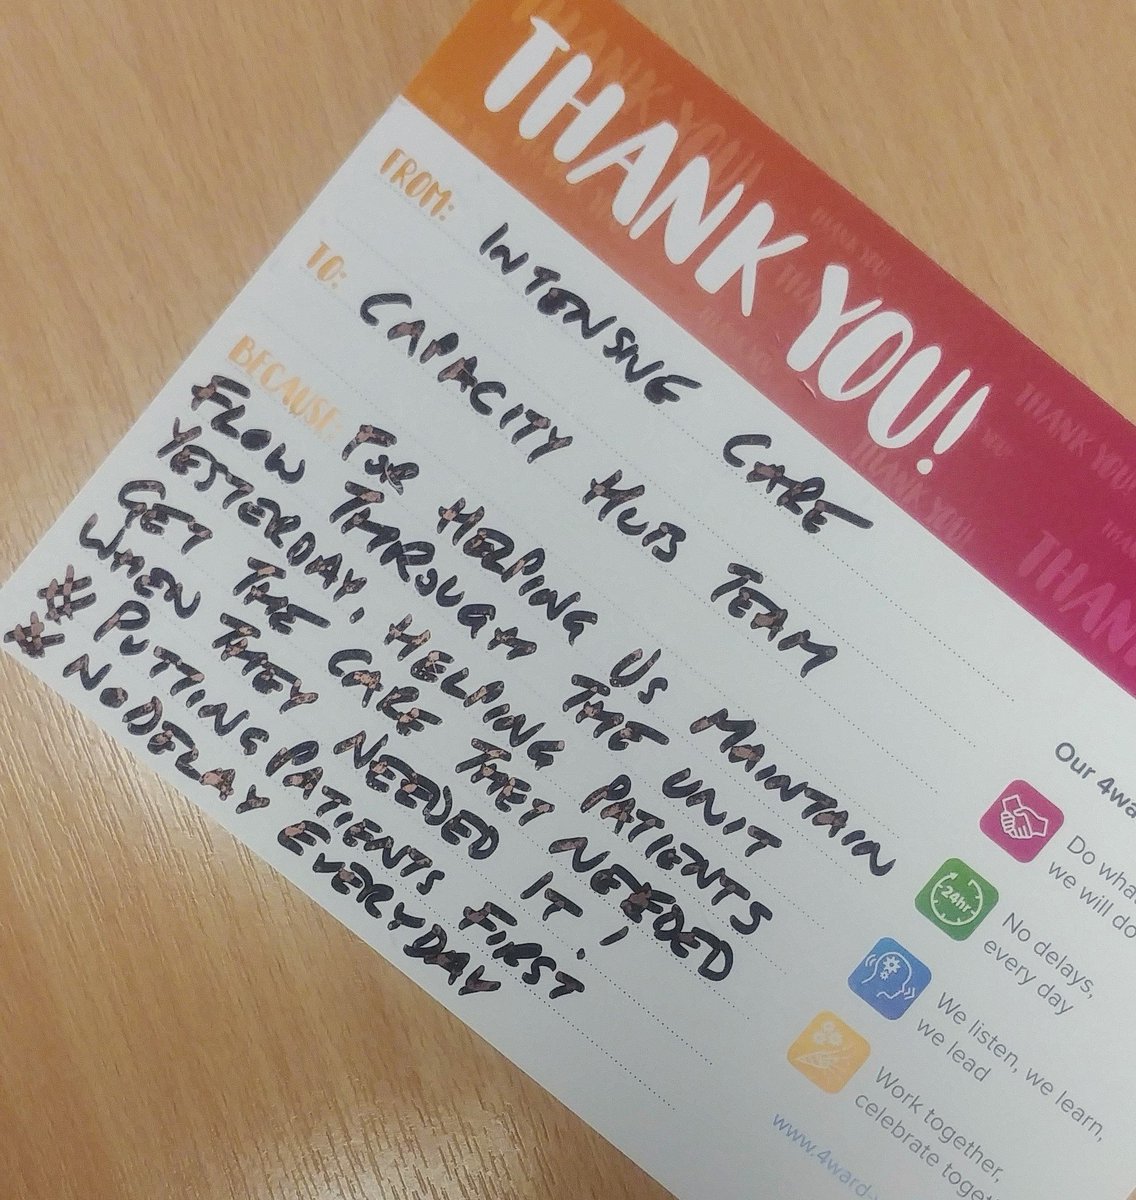 THANK YOU!
FROM: INTENSIVE CARE
TO: CAPACITY HUB TEAM
BECAUSE: FOR HELPING US MAINTAIN
FLOW THROUGH THE UNIT
YESTERDAY, HELPING PATIENTS
GET THE CARE THEY NEEDED,
WHEN THEY NEEDED IT.
# PUTTING PATIENTS FIRST
# NODELAY EVERYDAY
Our 4wa
Do what
we will do
24hr
No delays,
every day
We listen, we learn,
we lead
Work together,
celebrate toget
www.4ward-